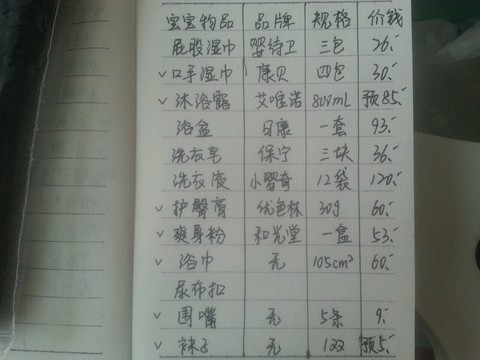 宝宝物品 品牌 规格 价钱
屁股湿巾 婴侍卫 三包 26.-
√ 口手湿巾 康贝 四包 30.-
√ 沐浴露 艾唯诺 mL 预85.-
浴盆 日康 一套 93.-
洗衣皂 保宁 三块 36.-
洗衣液 小婴奇 12袋 120.-
√ 护臀膏 优色林 30g 60.-
√ 爽身粉 和光堂 一盒 53.-
√ 浴巾 无 105cm² 60.-
尿布扣
√ 围嘴 无 5条 9.-
√ 袜子 无 12双 预5.-